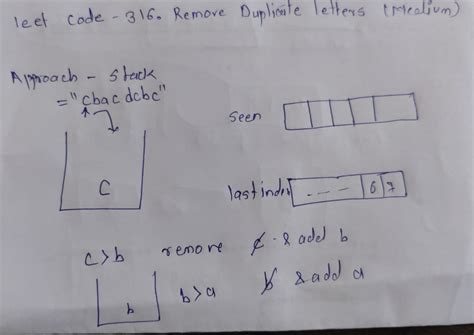 leet code - 316. Remove Duplicate letters (Medium)
Approach - Stack
= "cbacdcbc"
seen
C
lastindex --- 6 7
c>b remove c & add b
b
b>a b & add a